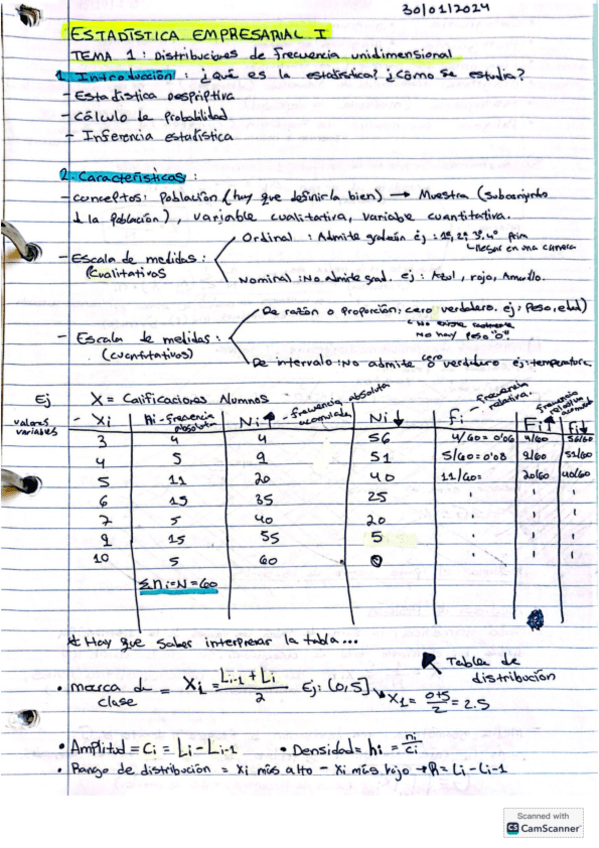 30/01/2024
ESTADÍSTICA EMPRESARIAL I
TEMA 1: Distribuciones de frecuencia unidimensional
1. Introducción : ¿Qué es la estadística? ¿Cómo se estudia?
- Estadística Despriptiva
- Cálculo de probabilidad
- Inferencia estadística
2. Características :
- conceptos: Población (hay que definirla bien) → Muestra (subconjunto
d la población), variable cualitativa, variable cuantitativa.
Ordinal : Admite gradeán ej : 1º, 2º, 3º, 4º prim
llegar en una carrera
- Escala de medidas :
(cualitativos
Nominal : No admite grad. ej : Azul, rojo, Amarillo.
De razón o proporción: cero verdadero. ej: Peso, edad)
No existe realmente
No hay peso "0"
- Escala de medidas :
(cuantitativos)
De intervalo : No admite cero "0" verdadero ej: temperatura.
Ej X = Calificaciones Alumnos
valores variables
- Xi ni - frecuencia absoluta Ni↑ - frecuencia absoluta acumulada Ni↓ fi - frecuencia relativa Fi↑ frecuencia relativa acumulada Fi↓
3 4 4 56 4/60 = 0'06 4/60 56/60
4 5 9 51 5/60 = 0'08 9/60 51/60
5 11 20 40 11/60 = 20/60 40/60
6 15 35 25
7 5 40 20
9 15 55 5
10 5 60 0
Σni = N = 60
* Hay que saber interpretar la tabla...
Tabla de
distribución
• marca de clase = Xi = Li-1 + Li / 2 Ej: (0,5] X1 = 0+5 / 2 = 2.5
• Amplitud = Ci = Li - Li-1 • Densidad = hi = ni / ci
• Rango de distribución = Xi más alto - Xi más bajo → R = Li - Li-1
Scanned with
CS CamScanner